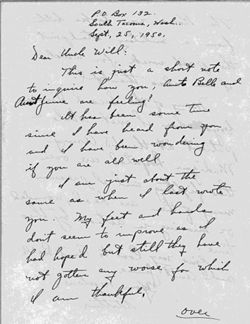 P.O. Box 132.
South Tacoma, Wash.
Sept. 25, 1950.
Dear Uncle Will:
This is just a short note
to inquire how you, Aunt Belle and
Aunt Jennie are feeling!
It has been some time
since I have heard from you
and I have been wondering
if you are all well
I am just about the
same as when I last wrote
you. My feet and hands
dont seem to improve as I
had hoped but still they have
not gotten any worse for which
I am thankful,
over